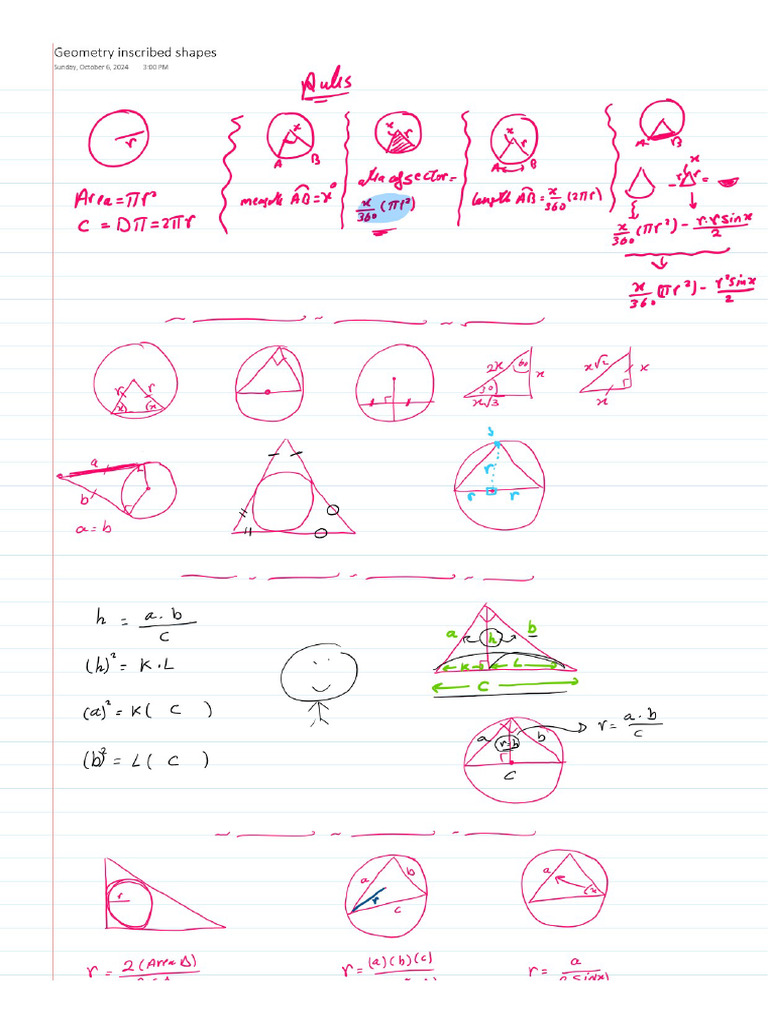 Geometry inscribed shapes
Sunday, October 6, 2024 3:00 PM
Rules
r
x
A B
x r
x r
A B
A B
x
r r
Area = πr²
C = Dπ = 2πr
AB = x°
Area of sector =
x/360 (πr²)
length AB = x/360 (2πr)
- =
x/360 (πr²) - r.r sinx/2
x/360 (πr²) - r² sinx/2
r r
x x
2x 60 x
30
x√3
x√2 x
x
a
b
a = b
r
r r
h = a.b/c
(h)² = K.L
(a)² = K( c )
(b)² = L( c )
a h b
K L
c
a r=h b
c
r = a.b/c
r
a b
r
c
a x
r = 2(Area Δ)
r = (a)(b)(c)
r = a